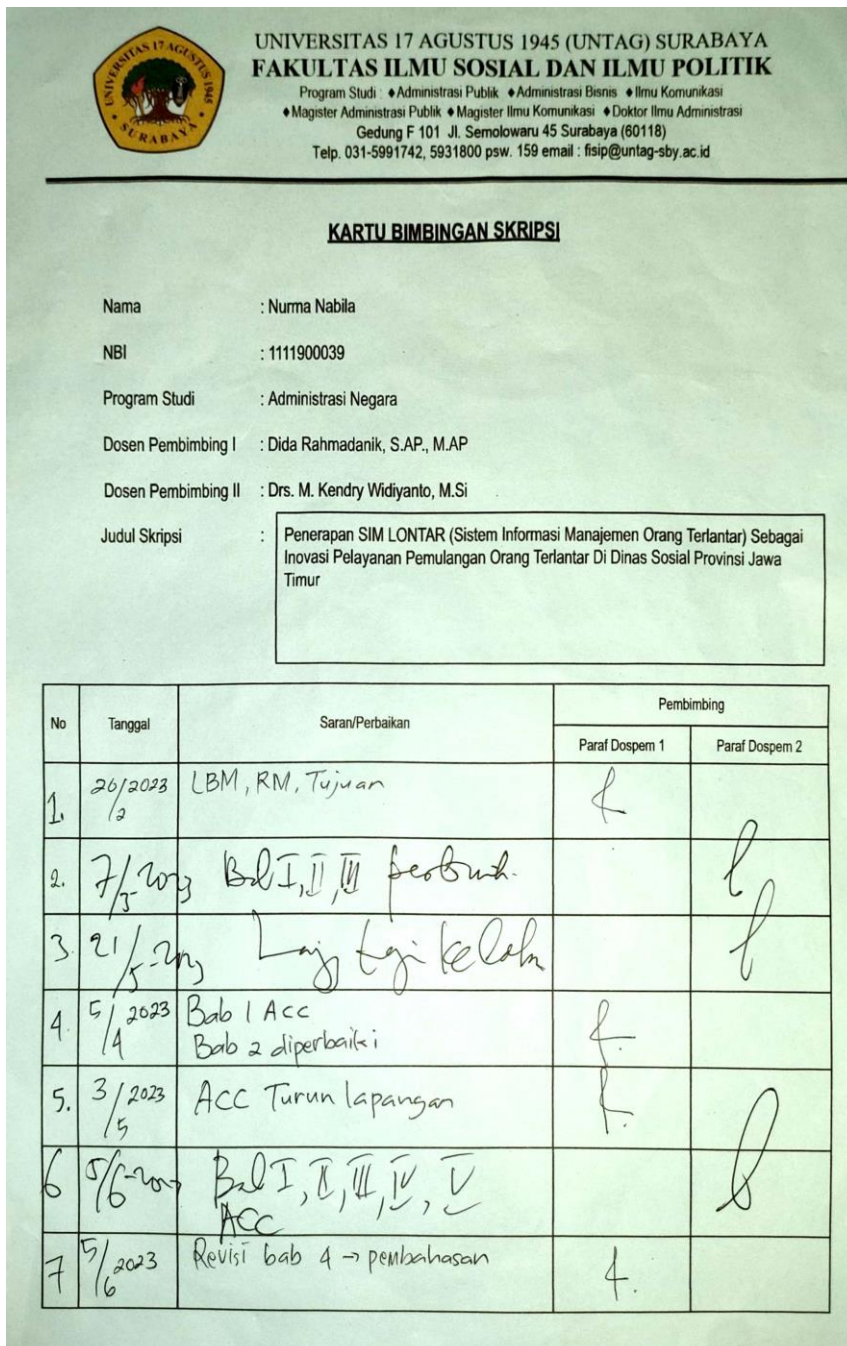 UNIVERSITAS 17 AGUSTUS 1945
SURABAYA
UNIVERSITAS 17 AGUSTUS 1945 (UNTAG) SURABAYA
FAKULTAS ILMU SOSIAL DAN ILMU POLITIK
Program Studi : ♦Administrasi Publik ♦Administrasi Bisnis ♦Ilmu Komunikasi
♦Magister Administrasi Publik ♦Magister Ilmu Komunikasi ♦Doktor Ilmu Administrasi
Gedung F 101 Jl. Semolowaru 45 Surabaya (60118)
Telp. 031-5991742, 5931800 psw. 159 email : fisip@untag-sby.ac.id
KARTU BIMBINGAN SKRIPSI
Nama : Nurma Nabila
NBI : 1111900039
Program Studi : Administrasi Negara
Dosen Pembimbing I : Dida Rahmadanik, S.AP., M.AP
Dosen Pembimbing II : Drs. M. Kendry Widiyanto, M.Si
Judul Skripsi : Penerapan SIM LONTAR (Sistem Informasi Manajemen Orang Terlantar) Sebagai
Inovasi Pelayanan Pemulangan Orang Terlantar Di Dinas Sosial Provinsi Jawa
Timur
No Tanggal Saran/Perbaikan Pembimbing
Paraf Dospem 1 Paraf Dospem 2
1. 26/2 2023 LBM, RM, Tujuan
2. 7/3-2023 Bab I, II, III
3. 21/5-2023
4. 5/4 2023 Bab 1 Acc
Bab 2 diperbaiki
5. 3/5 2023 ACC Turun lapangan
6 5/6-2023 Bab I, II, III, IV, V
ACC
7 5/6 2023 Revisi bab 4 → pembahasan